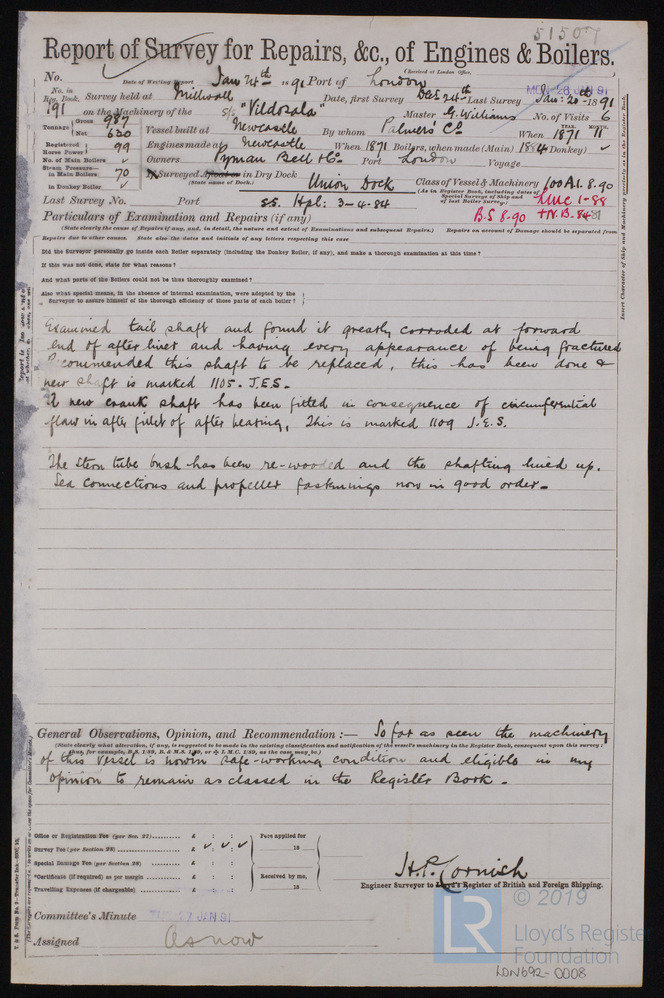 51507
Report of Survey for Repairs, &c., of Engines & Boilers.
(Received at London Office,
No. Date of Writing Report Jan 24th 1891 Port of London
MON 26 JAN 91
No. in Reg. Book. Survey held at Millwall Date, first Survey Dec 24th Last Survey Jan: 20th 1891
191 on the Machinery of the S/s "Vildosala" Master G. Williams No. of Visits 6
Tonnage Gross 987 Net 630 Vessel built at Newcastle By whom Palmers' Co When YEAR. 1871 MONTH. 11
Registered Horse Power 99 Engines made at Newcastle When 1871 Boilers, when made (Main) 1884 (Donkey) ✓
No. of Main Boilers ✓ Owners Pyman Bell & Co Port London Voyage
Steam Pressure— in Main Boilers 70 Surveyed Afloat or in Dry Dock Union Dock Class of Vessel & Machinery 100A1. 8.90
in Donkey Boiler ✓ (State name of Dock.) (As in Register Book, including dates of Special Surveys of Ship and of last Boiler Survey.)
Last Survey No. Port S.S. Hpl: 3-4-84 LMC 1-88
B.S 8.90 +N.B. 84
Particulars of Examination and Repairs (if any)
(State clearly the cause of Repairs if any, and, in detail, the nature and extent of Examinations and subsequent Repairs.) Repairs on account of Damage should be separated from
Repairs due to other causes. State also the dates and initials of any letters respecting this case
Did the Surveyor personally go inside each Boiler separately (including the Donkey Boiler, if any), and make a thorough examination at this time?
If this was not done, state for what reasons?
And what parts of the Boilers could not be thus thoroughly examined?
Also what special means, in the absence of internal examination, were adopted by the
Surveyor to assure himself of the thorough efficiency of those parts of each boiler?
Examined tail shaft and found it greatly corroded at forward
end of after liner and having every appearance of being fractured
Recommended this shaft to be replaced, this has been done &
new shaft is marked 1105. J.E.S.
A new crank shaft has been fitted in consequence of circumferential
flaw in after fillet of after bearing, This is marked 1109 J.E.S.
The Stern tube bush has been re-wooded and the shafting lined up.
Sea connections and propeller fastenings now in good order.
General Observations, Opinion, and Recommendation :— So far as seen the machinery
(State clearly what alteration, if any, is suggested to be made in the existing classification and notification of the vessel's machinery in the Register Book, consequent upon this survey:
thus, for example, B.S. 1/89, B. & M.S. 1/89, or L.M.C. 1/89, as the case may be.)
of this Vessel is now in safe-working condition and eligible in my
opinion to remain as classed in the Register Book.
Office or Registration Fee (per Sec. 27) £ : : Fees applied for
Survey Fee (per Section 28) £ ✓ : ✓ : ✓ 18
Special Damage Fee (per Section 28) £ : :
*Certificate (if required) as per margin £ : : Received by me,
Travelling Expenses (if chargeable) £ : : 18
H.P. Cornish
Engineer Surveyor to Lloyd's Register of British and Foreign Shipping.
Committee's Minute TUES 27 JAN 91
Assigned As now
© 2019
LR
Lloyd's Register
Foundation
LDN692-0008
Insert Character of Ship and Machinery precisely as in the Register Book.